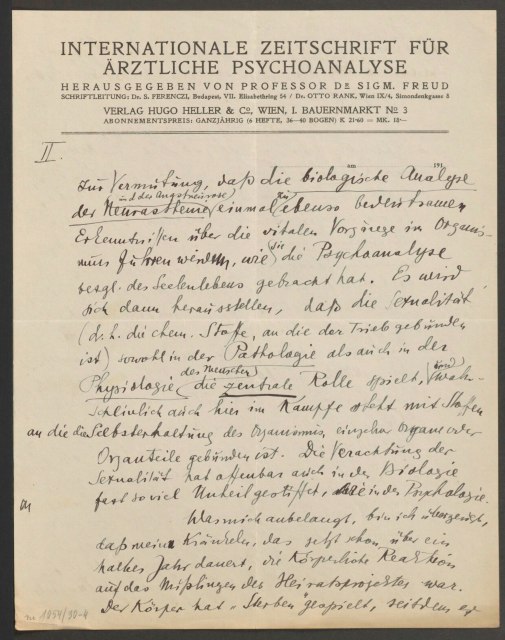 INTERNATIONALE ZEITSCHRIFT FÜR
ÄRZTLICHE PSYCHOANALYSE
HERAUSGEGEBEN VON PROFESSOR DR SIGM. FREUD
SCHRIFTLEITUNG: Dr. S. FERENCZI, Budapest, VII. Elisabethring 54 / Dr. OTTO RANK, Wien IX/4, Simondenkgasse 8
VERLAG HUGO HELLER & Co, WIEN, I. BAUERNMARKT No 3
ABONNEMENTSPREIS: GANZJÄHRIG (6 HEFTE, 36—40 BOGEN) K 21·60 = MK. 18·—
II.
am 191
zur Vermutung, daß die biologische Analyse
und der Angstneurose zu
der Neurasthenie einmal ebenso bedeutsamen
Erkenntnissen über die vitalen Vorgänge im Organis-
mus führen werden, wie sie die Psychoanalyse
bezgl. des Seelenlebens gebracht hat. Es wird
sich dann herausstellen, daß die Sexualität
(d. h. die chem. Stoffe, an die der Trieb gebunden
ist) sowohl in der Pathologie als auch in der
des Menschen
Physiologie die zentrale Rolle spielt, und wahr-
scheinlich auch hier im Kampfe steht mit Stoffen
an die die Selbsterhaltung des Organismus, einzelner Organe oder
Organteile gebunden ist. Die Verachtung der
Sexualität hat offenbar auch in der Biologie
fast soviel Unheil gestiftet, wie in der Psychologie.
Was mich anbelangt, bin ich überzeugt,
daß mein Kränkeln, das jetzt schon über ein
halbes Jahr dauert, die körperliche Reaktion
auf das Mißlingen des Heiratsprojektes war.
Der Körper hat „Sterben" gespielt, seitdem er
1054/30-4